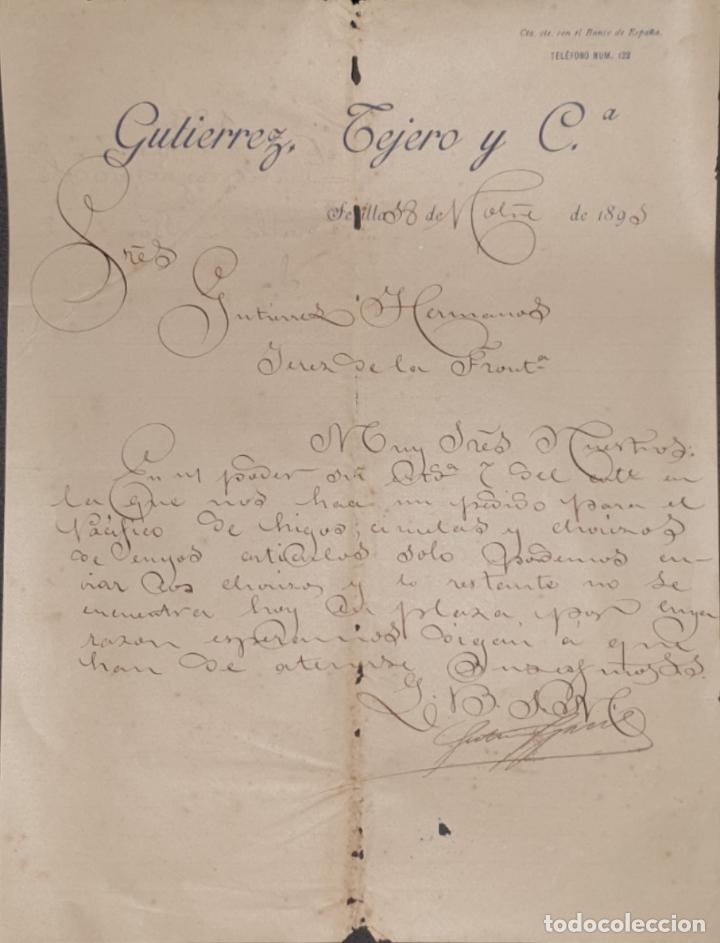 Cta. cte. con el Banco de España.
TELÉFONO NUM. 122
Gutierrez, Tejero y C.ª
Sevilla 8 de Nobre de 1895
Sres
Gutierrez Hermanos
Jerez de la Frontª
Muy Sres Nuestros:
En ntr poder su Atª 7 del en
la que nos hace un pedido para el
Pacifico de higos, ciruelas y chorizos
de cuyos articulos solo podemos en-
viar los chorizos y lo restante no se
encuentra hoy en plaza por cuya
razon esperamos digan á que
han de atenerse Sus afmos Ss. Ss.
Q. B. S. M.
todocoleccion